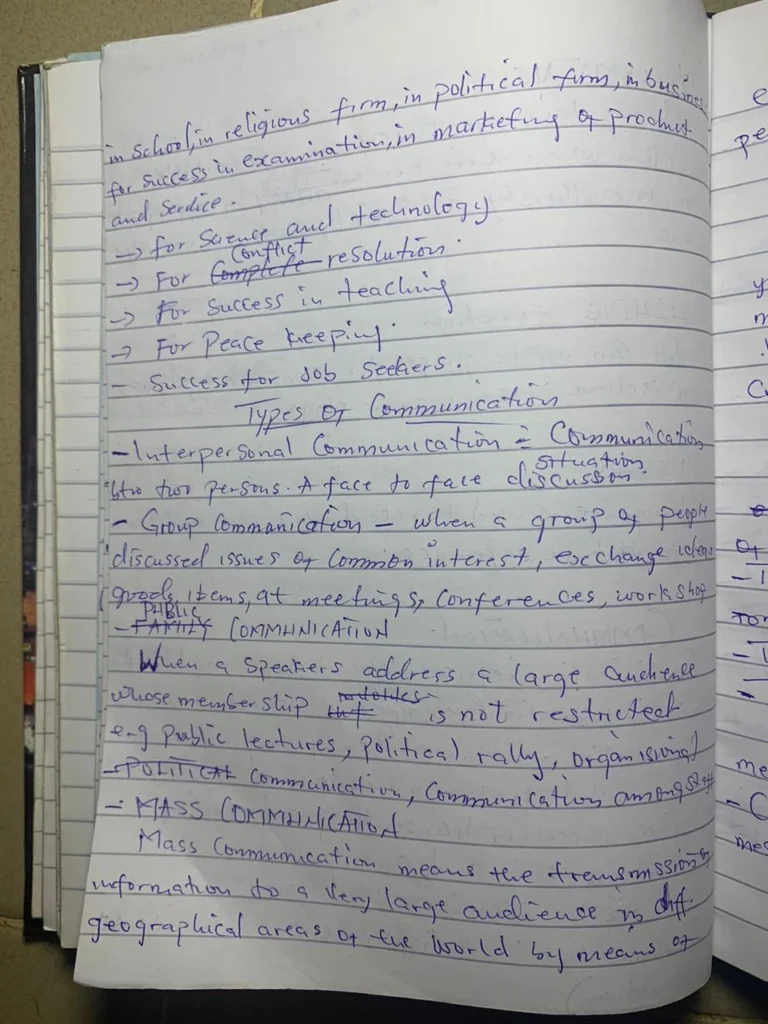 in school, in religious firm, in political firm, in business
for success in examination, in marketing of product
and service.
→ for Science and technology
Conflict
→ For Complete resolution.
→ For Success in teaching
→ For Peace keeping.
- Success for Job Seekers.
Types of Communication
- Interpersonal Communication = Communication
situation
btw two persons. A face to face discussion.
- Group Communication - when a group of people
discussed issues of common interest, exchange ideas
goods, items, at meetings, conferences, workshop
PUBLIC
- FAMILY COMMUNICATION
When a speakers address a large audience
whose membership is not restricted
e.g public lectures, political rally, organisional
- POLITICAL Communication, Communication among staff
- MASS COMMUNICATION
Mass Communication means the transmission of
information to a very large audience in diff.
geographical areas of the world by means of
e
pe
y
m
C
of
- 1
Tor
- 1
-
me
- C
mes